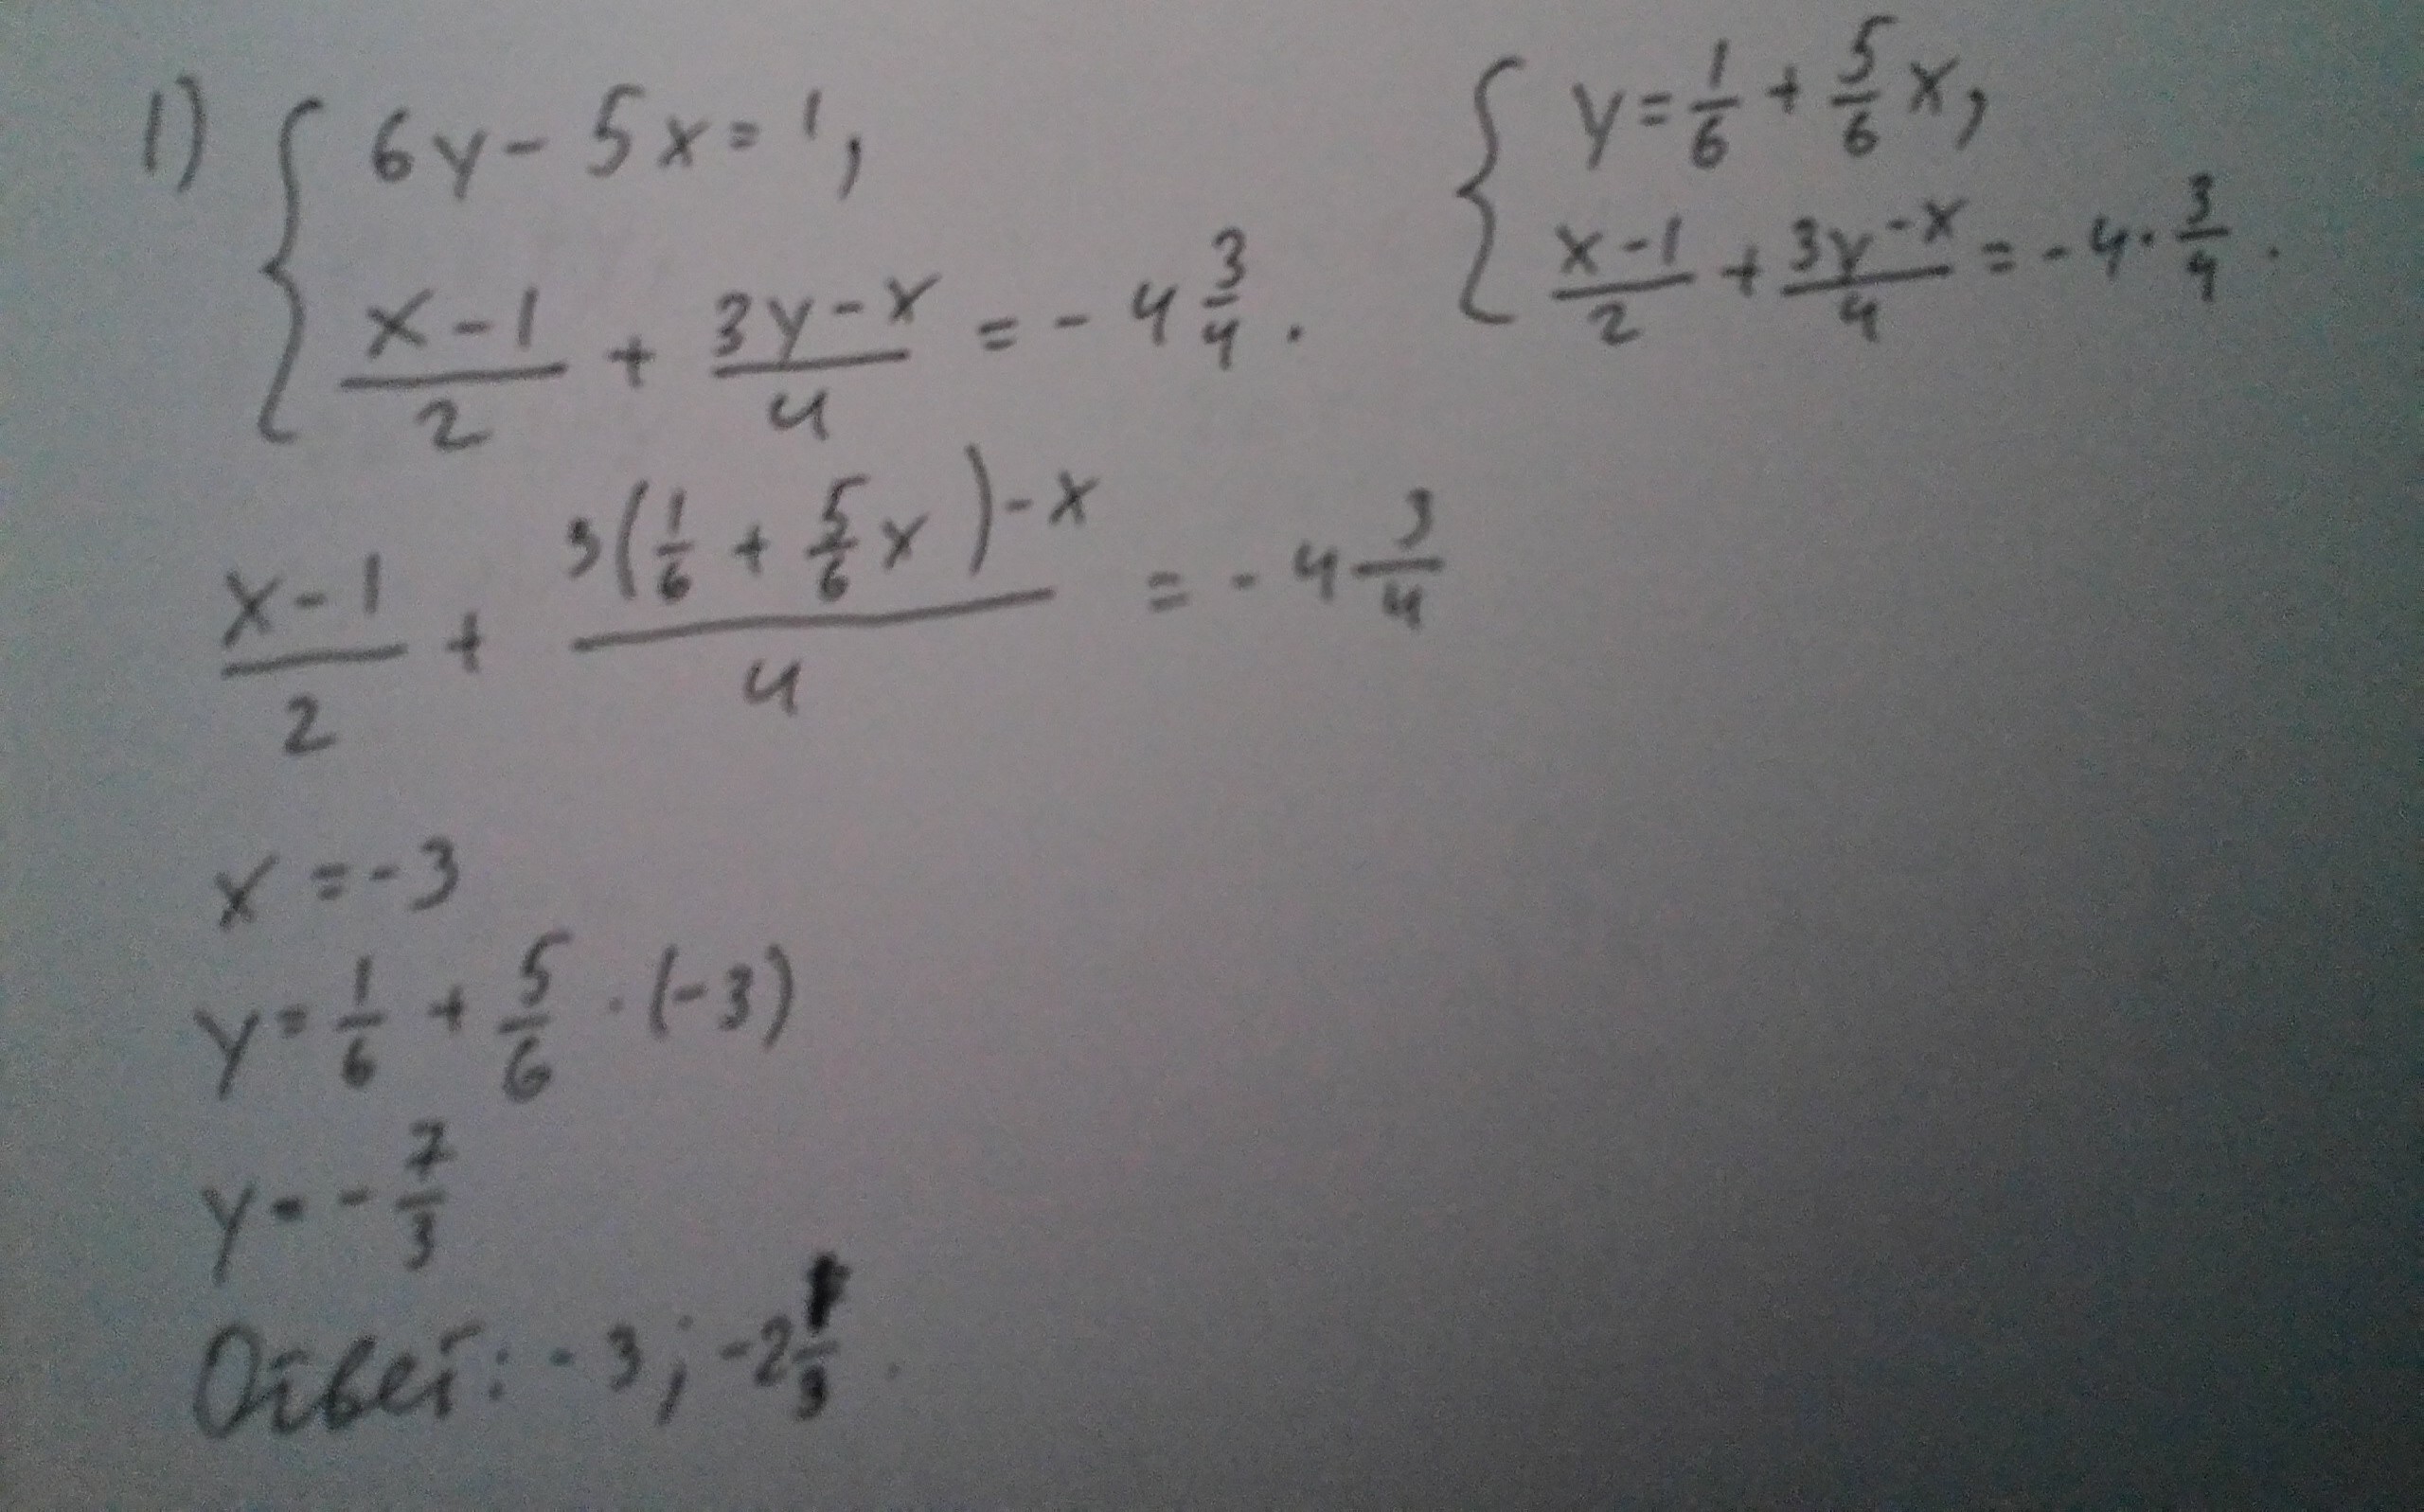 1) { 6y - 5x = 1,
x-1/2 + 3y-x/4 = -4 3/4.
{ y = 1/6 + 5/6 x,
x-1/2 + 3y-x/4 = -4 · 3/4.
x-1/2 + 3(1/6 + 5/6 x)-x/4 = -4 3/4
x = -3
y = 1/6 + 5/6 · (-3)
y = - 7/3
Ответ: -3; -2 1/3.